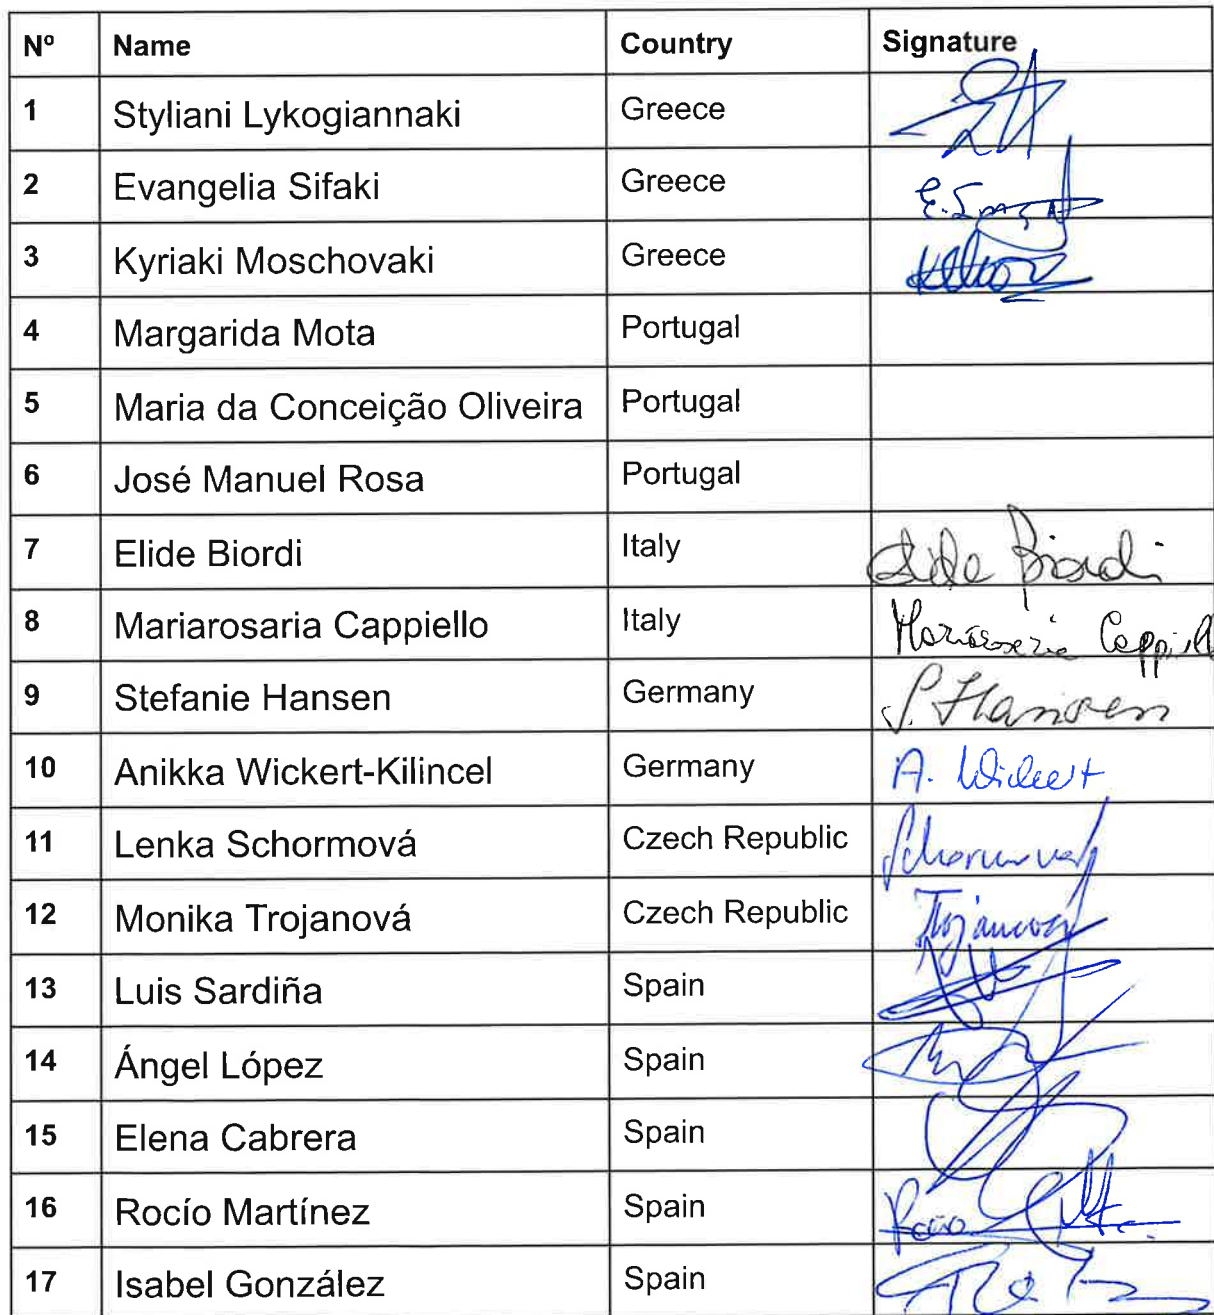 Nº Name Country Signature
1 Styliani Lykogiannaki Greece
2 Evangelia Sifaki Greece
3 Kyriaki Moschovaki Greece
4 Margarida Mota Portugal
5 Maria da Conceição Oliveira Portugal
6 José Manuel Rosa Portugal
7 Elide Biordi Italy Elide Biordi
8 Mariarosaria Cappiello Italy Mariarosaria Cappiell
9 Stefanie Hansen Germany S. Hansen
10 Anikka Wickert-Kilincel Germany A. Wickert
11 Lenka Schormová Czech Republic Schormová
12 Monika Trojanová Czech Republic Trojanová
13 Luis Sardiña Spain
14 Ángel López Spain
15 Elena Cabrera Spain
16 Rocío Martínez Spain Rocío
17 Isabel González Spain